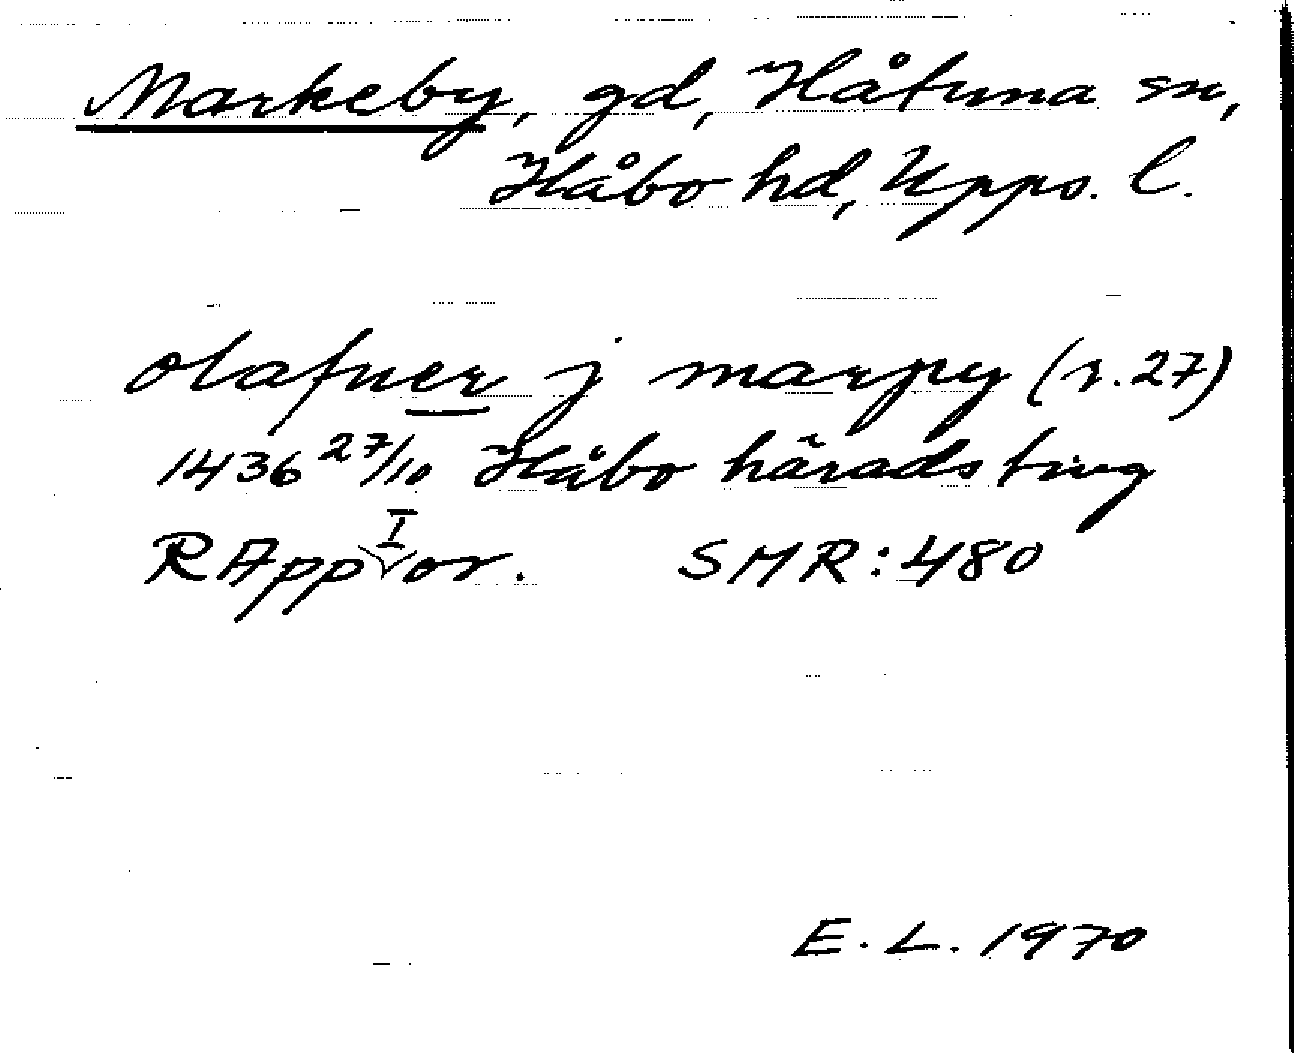 Markeby, gd, Håtuna sn,
Håbo hd, Upps. l.
olafuer j marpy (r. 27)
1436 27/10 Håbo häradsting
RApp I or. SMR: 480
E. L. 1970